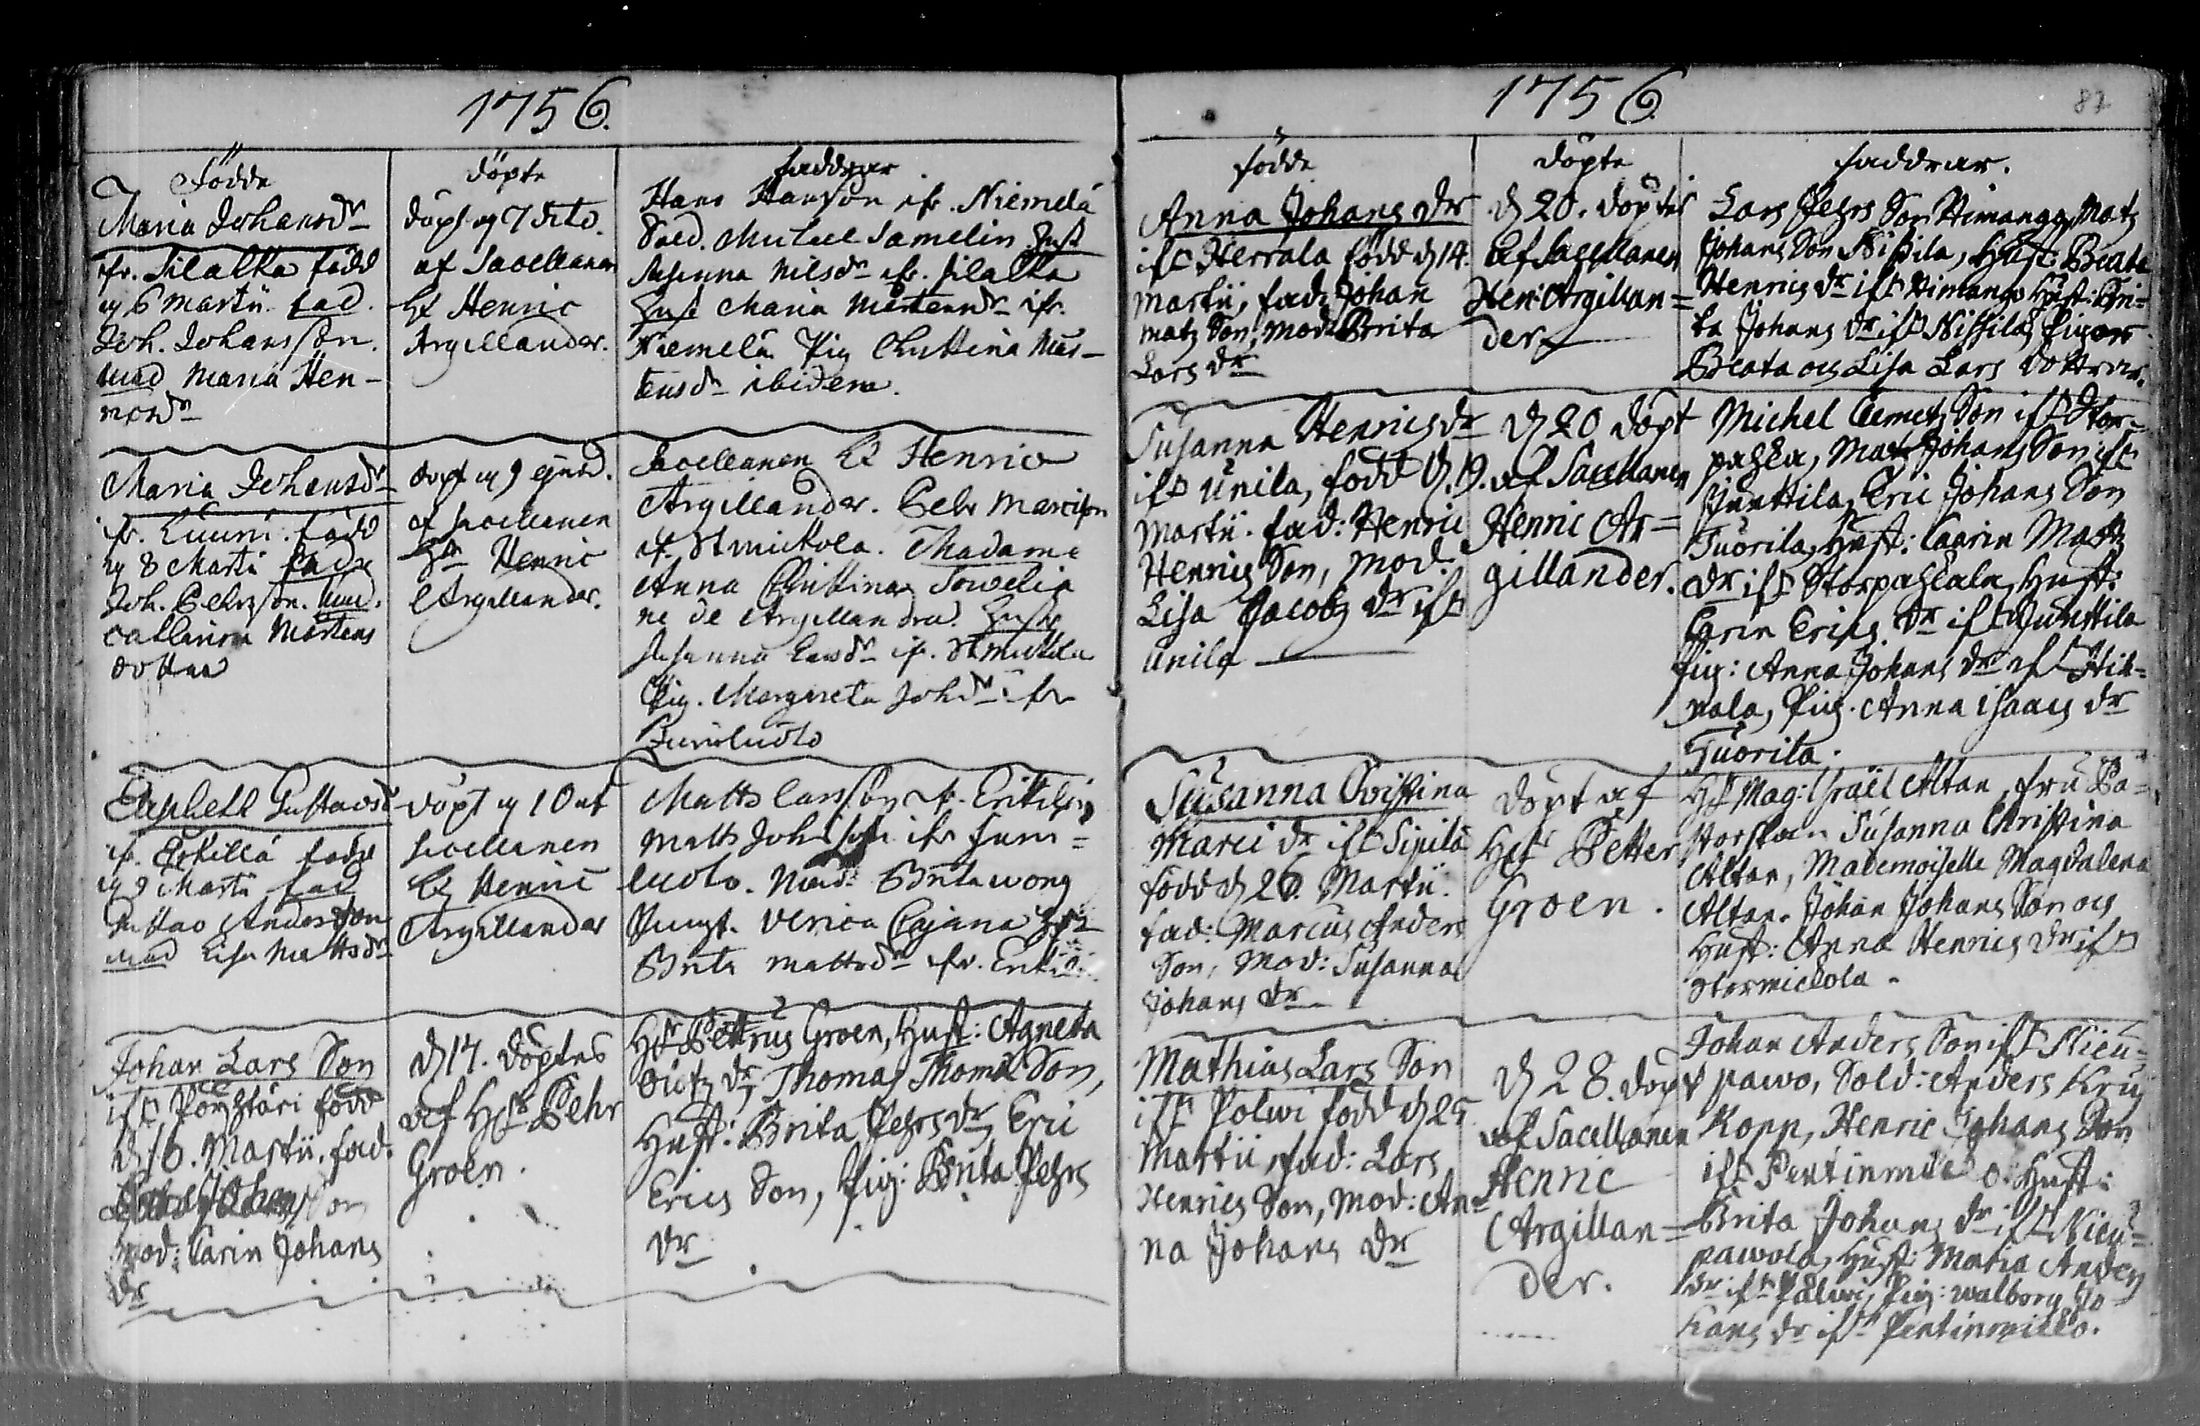 1756.
Födde
Maria Johansdr
ifr. Silakka född
ɲ 6 Martii. fad.
Joh. Johansson.
mod Maria Hen-
ricsdr
döpte
döpt ɲ 7 dito.
af Sacellanen
Hr Henric
Argillander.
faddrar
Hans Hansson ifr. Niemelä
Sold. Michel Samelin Hust
Susanna Nilsdr ifr. Silakka
Hust Maria Mårtensdr ifr.
Niemelä Pig Christina Mår-
tensdr ibidem.
Maria Johansdr
ifr. född
ɲ 8 Marti fadr
Joh. Pehrsson. mod.
Catharina Mårtens
dotter
döpt ɲ 9 ejusd.
af Sacellanen
Hr Henric
Argillander.
Sacellanen Hr Henric
Argillander. Pehr
af Stmickola. Madame
Anna Christina
ne de Argillandra. Hust
Susanna ifr. Stmickola
Pig. Margareta Johdr ifr
Elisabeth Gustavsdr
ifr. Erkillä född
ɲ 9 Marti fad
Gustav Andersson
mod Lisa Mattsdr
döpt ɲ 10 af
Sacellanen
Hr Henric
Argillander
Matts Larsson ifr.
Matts Johansson ifr Jum-
luoto. Mad: Brita Wong
Jungf. Ulrica Cajana Hust
Brita Mattsdr ifr.
Johan Lars Son
ifrn född
d 16. Martii. fad:
mod: Carin Johans
dr
d 17. döptes
af Hr Pehr
Groen.
Hr Pettrus Groen, Hust: Agneta
dr, Thomas Thomæ Son,
Hust: Brita Pehrs dr, Eric
Erics Son, Pig: Brita Pehrs
dr
1756
87
födde
Anna Johans dr
ifrn Herrala född d 14.
Martii, fad: Johan
Matz Son, Mod: Brita
Lars dr
döpte
d 20. döptes
af Sacellanen
Hen: Argillan=
der
faddrar.
Lars Pehrs Son Himanga, Matz
Johans Son Nissila, Hust: Beata
Henrics dr ifrn Himango Hust: Bri=
ta Johans dr ifrn Nissila, Pigor
Beata och Lisa Lars döttrar.
Susanna Henrics dr
ifrn Unila, född d. 19.
Martii. fad: Henric
Henrics Son, Mod:
Lisa Jacobs dr ifrn
Unila
d 20 döpt
af Sacellanen
Henric Ar=
gillander.
Michel Clemets Son ifrn Stor=
Matz Johans Son ifrn
Junttila, Eric Johans Son
Tuorila, Hust: Caarin Matz
dr ifrn Hust:
Carin Erics dr ifrn Junttila
Pig: Anna Johans dr ifrn Hik=
nala, Pig. Anna Isaacs dr
Tuorila.
Susanna Cristina
Marci dr ifrn Sipilä
född d 26. Martii.
fad: Marcus Anders
Son, Mod: Susanna
Johans dr
döpt af
Hr Petter
Groen.
Hr Mag: Israël Altan, fru Pa=
storskan Susanna Christina
Altan, Mademoiselle Magdalena
Altan. Johan Johans Son och
Hust: Anna Henrics dr ifrn
Stormickola.
Mathias Lars Son
ifrn Polwi född d 25
Martii, fad: Lars
Henrics Son, Mod: An=
na Johans dr
d 28. döpt
af Sacellanen
Henric
Argillan=
der.
Johan Anders Son ifrn Nicu=
pawo, Sold: Anders
Kopp, Henric Johans Son
ifrn Hust:
Brita Johans dr ifrn Nicu=
pawola, Hust: Maria Anders
dr ifrn Pålwi, Pig: Walborg Jo
hans dr ifrn Pentinmicko.